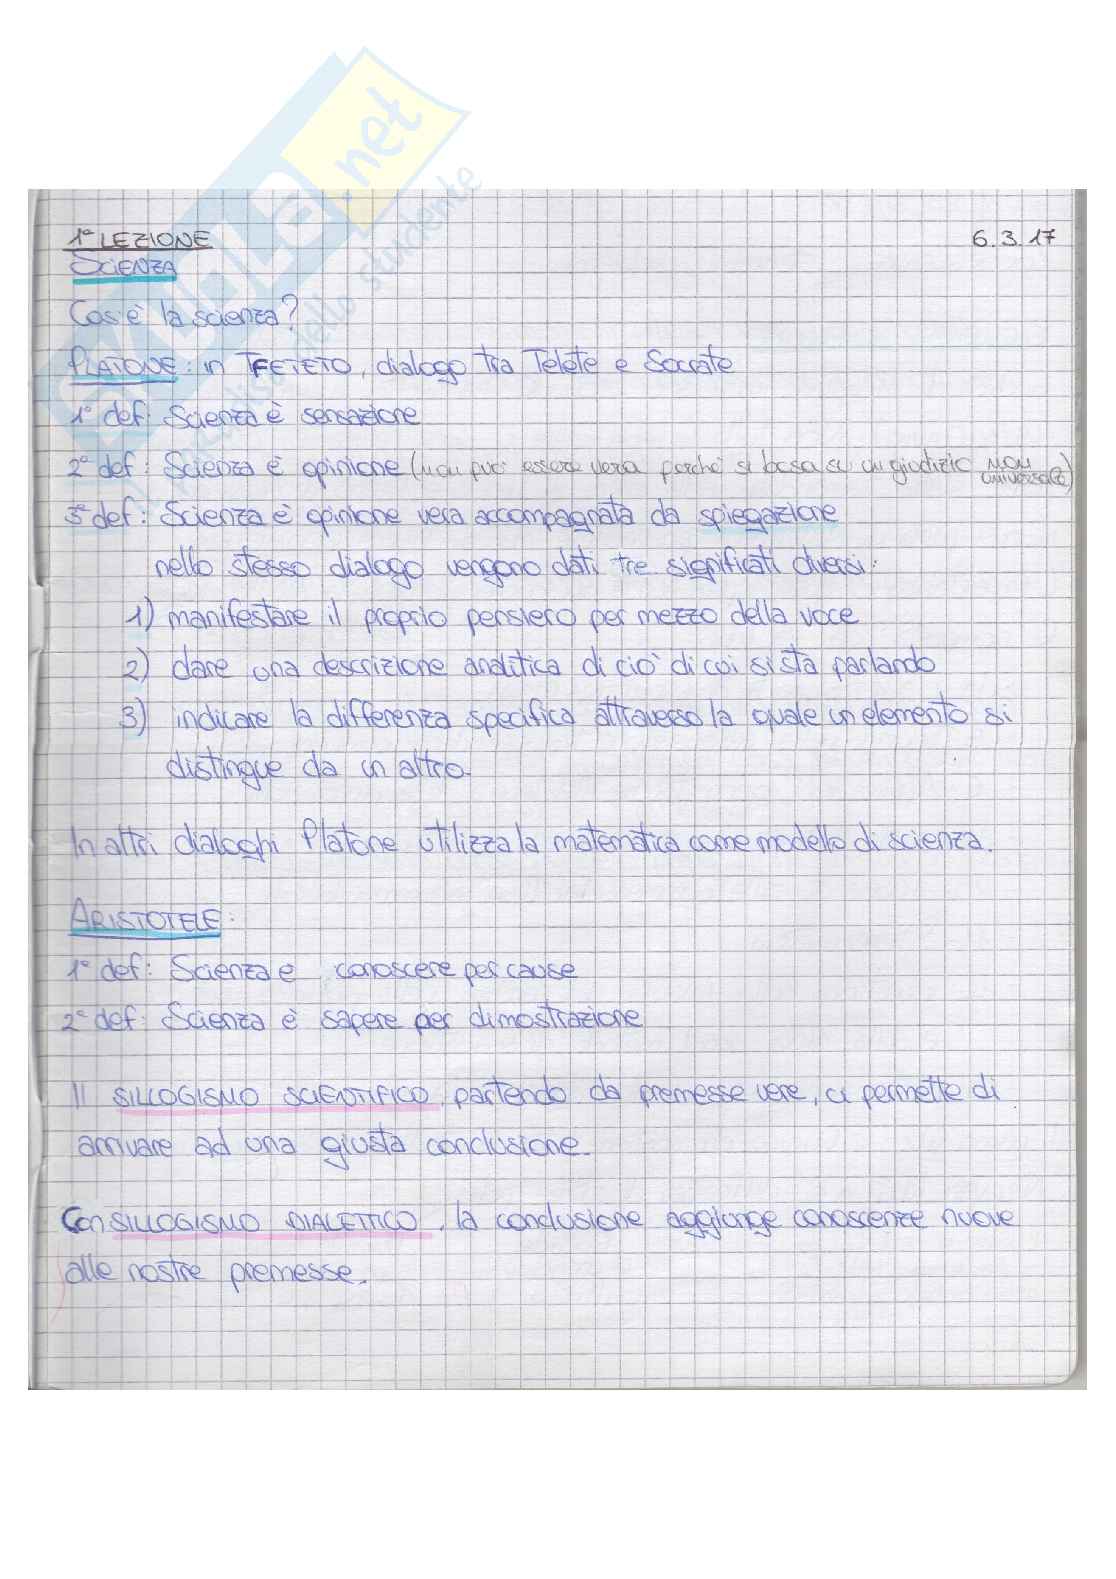 1ª LEZIONE 6.3.17
SCIENZA
Cos'è la scienza?
PLATONE: in TEETETO, dialogo tra Telete e Socrate
1ª def: Scienza è sensazione
2ª def: Scienza è opinione (non può essere vera perché si basa su un giudizio NON UNIVERSALE)
3ª def: Scienza è opinione vera accompagnata da spiegazione
nello stesso dialogo vengono dati tre significati diversi:
1) manifestare il proprio pensiero per mezzo della voce
2) dare una descrizione analitica di ciò di cui si sta parlando
3) indicare la differenza specifica attraverso la quale un elemento si
distingue da un altro.
In altri dialoghi Platone utilizza la matematica come modello di scienza.
ARISTOTELE:
1ª def: Scienza è conoscere per cause
2ª def: Scienza è sapere per dimostrazione
Il SILLOGISMO SCIENTIFICO, partendo da premesse vere, ci permette di
arrivare ad una giusta conclusione.
Con SILLOGISMO DIALETTICO, la conclusione aggiunge conoscenze nuove
alle nostre premesse.
.net
dello studente